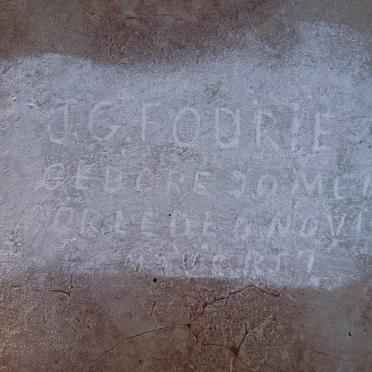 J.G. FOURIE
GEBORE 20 MEI
OORLEDE 9 NOV 1
VERS 7